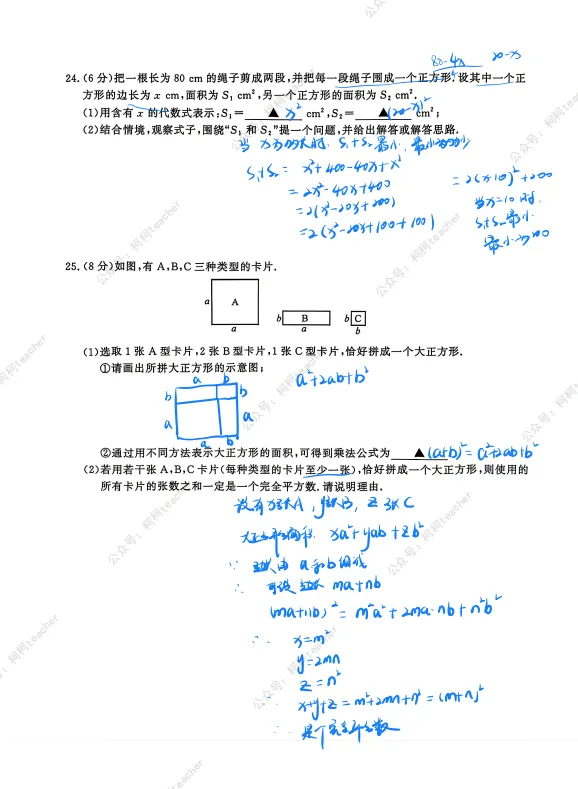 80-4x 20-x
24.(6分)把一根长为 80 cm 的绳子剪成两段,并把每一段绳子围成一个正方形.设其中一个正
方形的边长为 x cm,面积为 S₁ cm²,另一个正方形的面积为 S₂ cm².
(1)用含有 x 的代数式表示:S₁= ▲ x² cm²,S₂= ▲ (20-x)² cm²;
(2)结合情境,观察式子,围绕“S₁ 和 S₂”提一个问题,并给出解答或解答思路.
当 x为何值时, S₁+S₂最小, 最小为
S₁+S₂ = x²+400-40x+x²
= 2x²-40x+400
= 2(x²-20x+200)
= 2(x²-20x+100+100)
= 2(x-10)²+200
当x=10时,
S₁+S₂最小.
最小为200
25.(8分)如图,有 A,B,C 三种类型的卡片.
a A a
b B a
b C b
(1)选取 1 张 A 型卡片,2 张 B 型卡片,1 张 C 型卡片,恰好拼成一个大正方形.
①请画出所拼大正方形的示意图;
a b
b b
a a
a b
a²+2ab+b²
②通过用不同方法表示大正方形的面积,可得到乘法公式为 ▲ (a+b)²=a²+2ab+b²
(2)若用若干张 A,B,C 卡片(每种类型的卡片至少一张),恰好拼成一个大正方形,则使用的
所有卡片的张数之和一定是一个完全平方数.请说明理由.
设有x张A, y张B, z张C
大正方形面积 xa²+yab+zb²
∵ 边长由 a和b组成
∴ 可设边长 ma+nb
(ma+nb)² = m²a²+2ma·nb+n²b²
∴ x=m²
y=2mn
z=n²
∴ x+y+z=m²+2mn+n²=(m+n)²
∴ 是个完全平方数
公众号:柯柯teacher